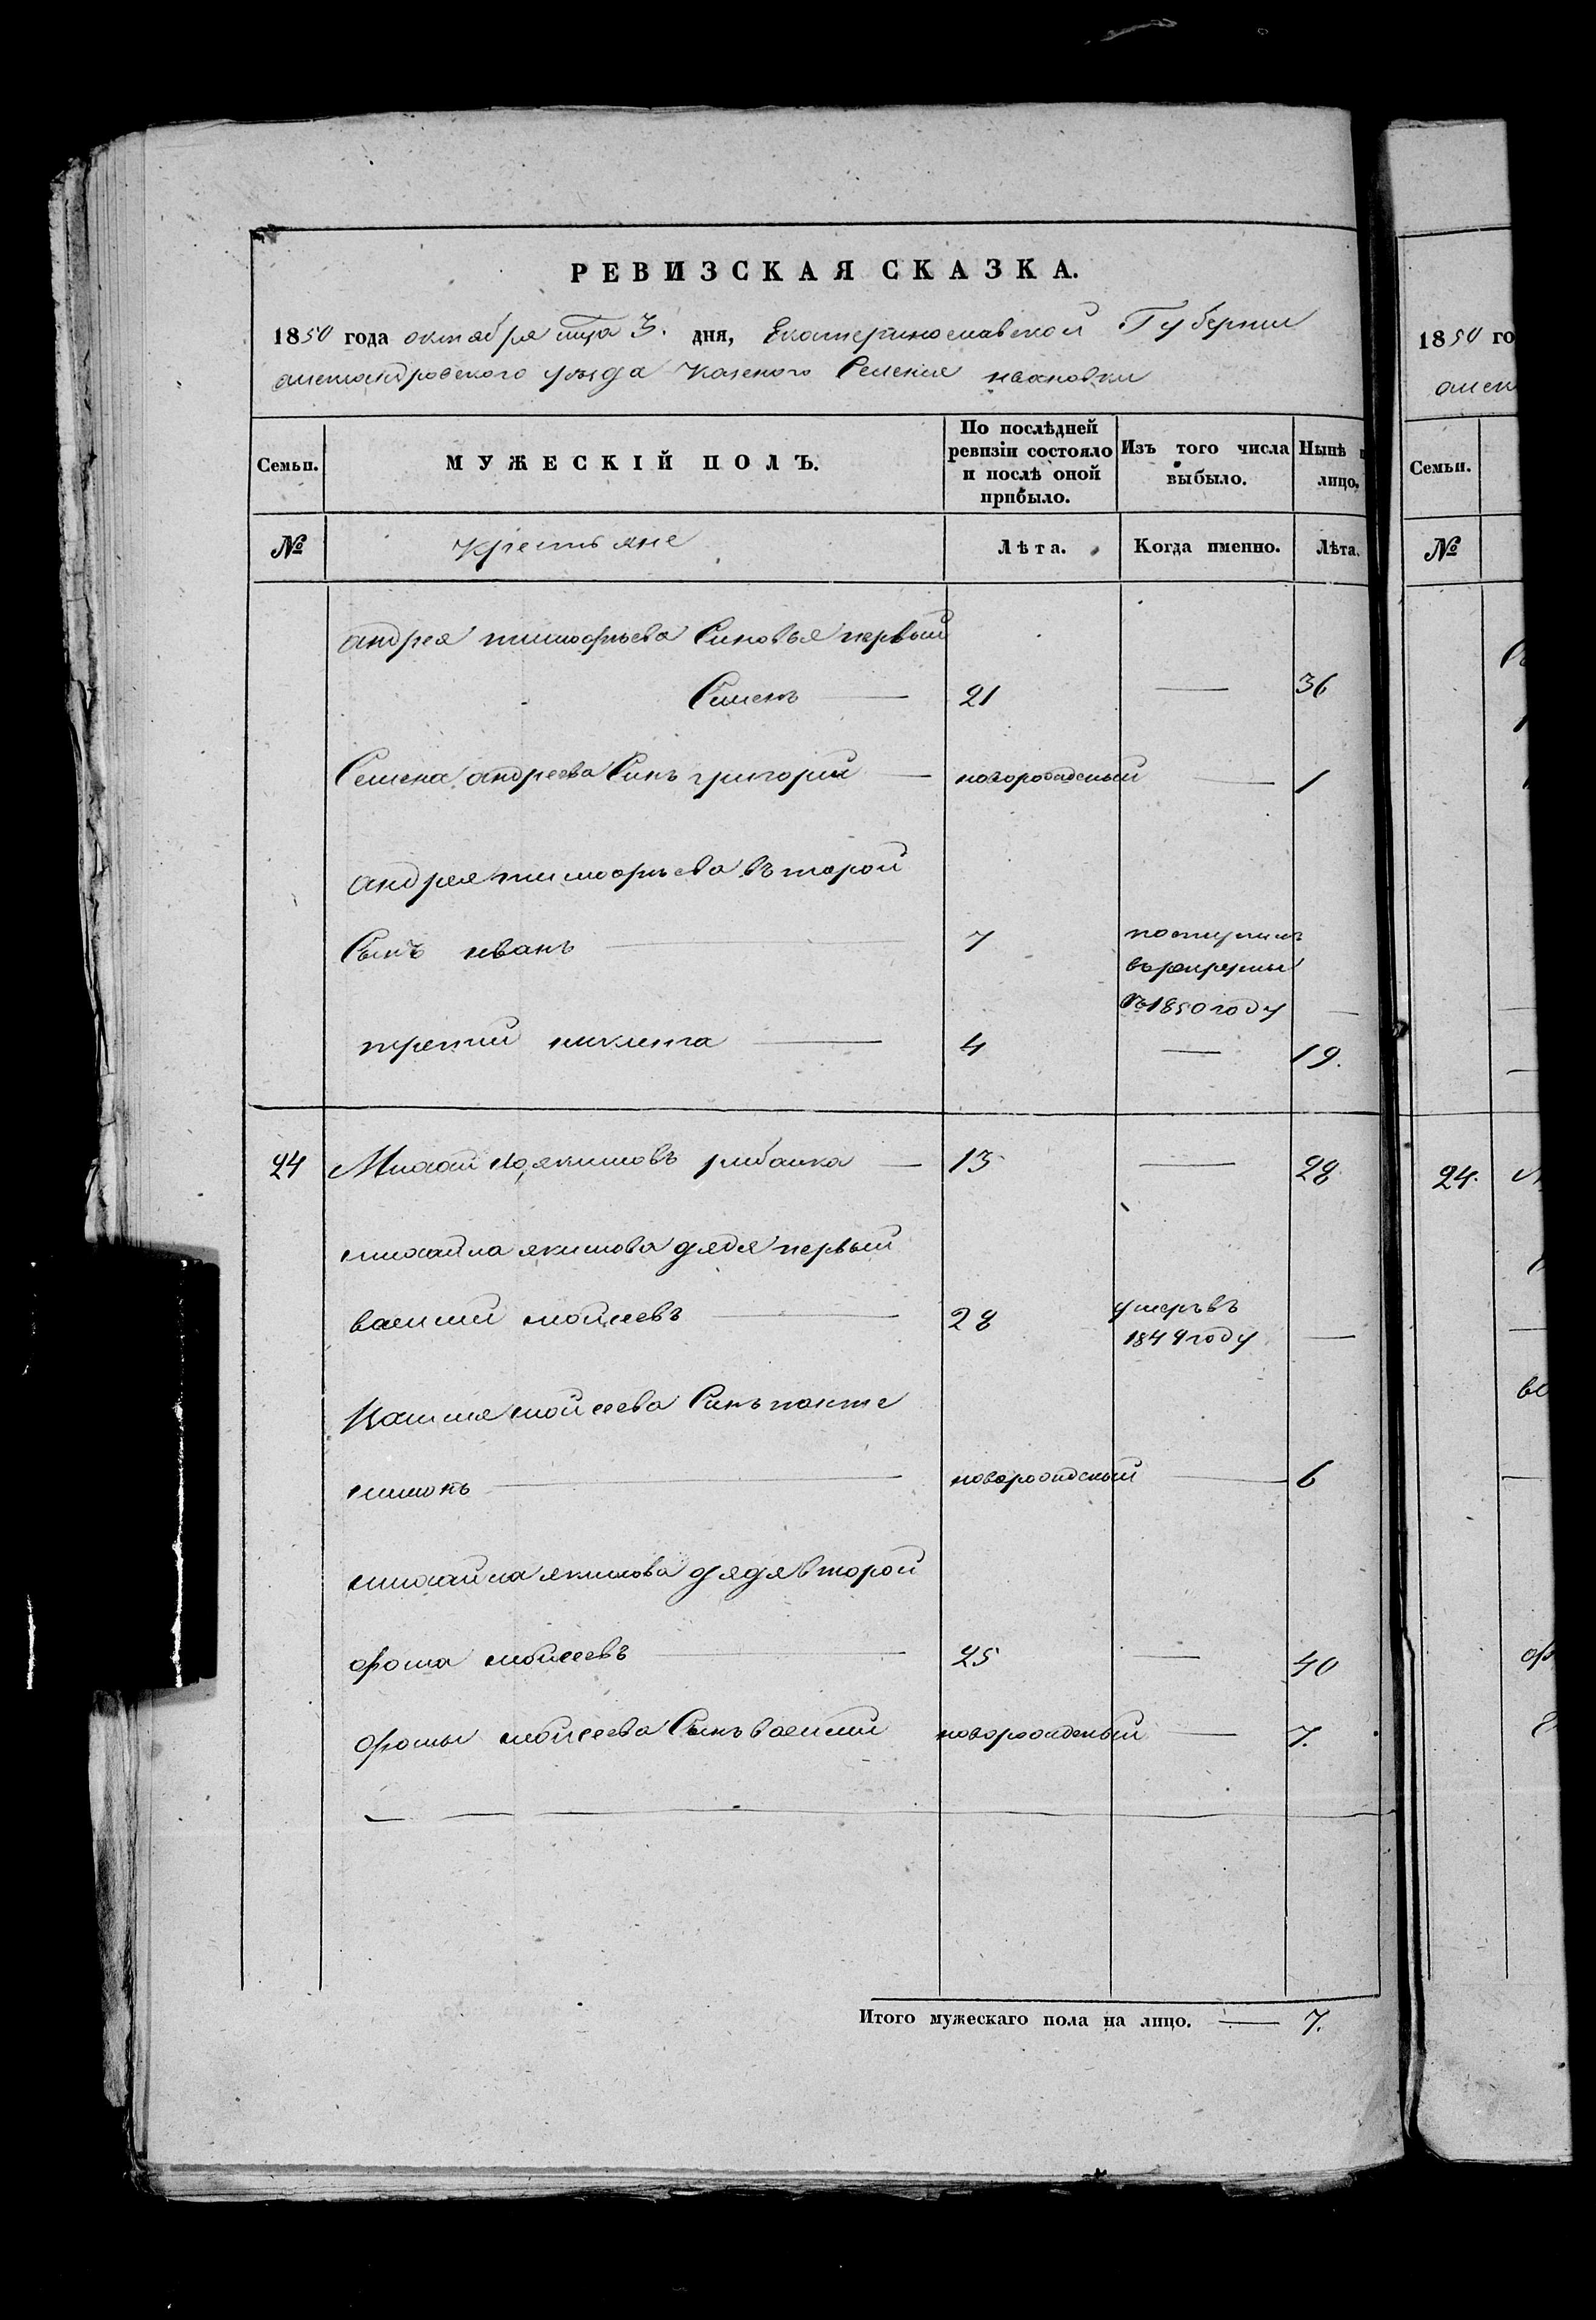 РЕВИЗСКАЯ СКАЗКА.
1850 года октября мца 3. дня, Екатеринославской Губернии
александровского уезда Казеного Селения ивановки
Семьи.
МУЖЕСКІЙ ПОЛЪ.
По послѣдней ревизіи состояло и послѣ оной прибыло.
Изъ того числа выбыло.
Нынѣ
лицо.
№
Крестьяне
Лѣта.
Когда именно.
Лѣта.
андрея тимофѣева Синовья первый
Сименъ — 21 — 36
Семена андреева Синъ григорий — новорожденый — 1
андрея тимофѣева въторой
Сынъ иванъ — 7 поступилъ
въ рекруты
въ 1850 году —
третий никита — 4 — 19.
24 Михайло якимовъ рибалка — 13 — 28
михайла якимова дядя первый
василий мойсеевъ — 28 умеръ въ
1849 году —
василия мойсеева Синъ
новорожденый — 6
михайла якимова дядя второй
фома мойсеевъ — 25 — 40
фомы мойсеева Сынъ василий новорожденый — 7.
Итого мужескаго пола на лицо. — 7.
1850 го
алек
Семьи.
№
24.